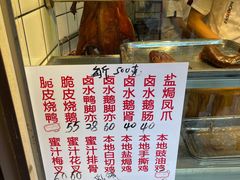 500克
脆皮烧鸭
脆皮烧鹅
55
卤水鸭脚亦
28
卤水鹅脚亦
60
卤水鹅肾
40
卤水鹅肠
40
盐焗凤爪
蜜汁梅
蜜汁花
蜜汁排骨
本地白切鸡
本地盐焗鸡
本地手撕鸡
本地豉油鸡